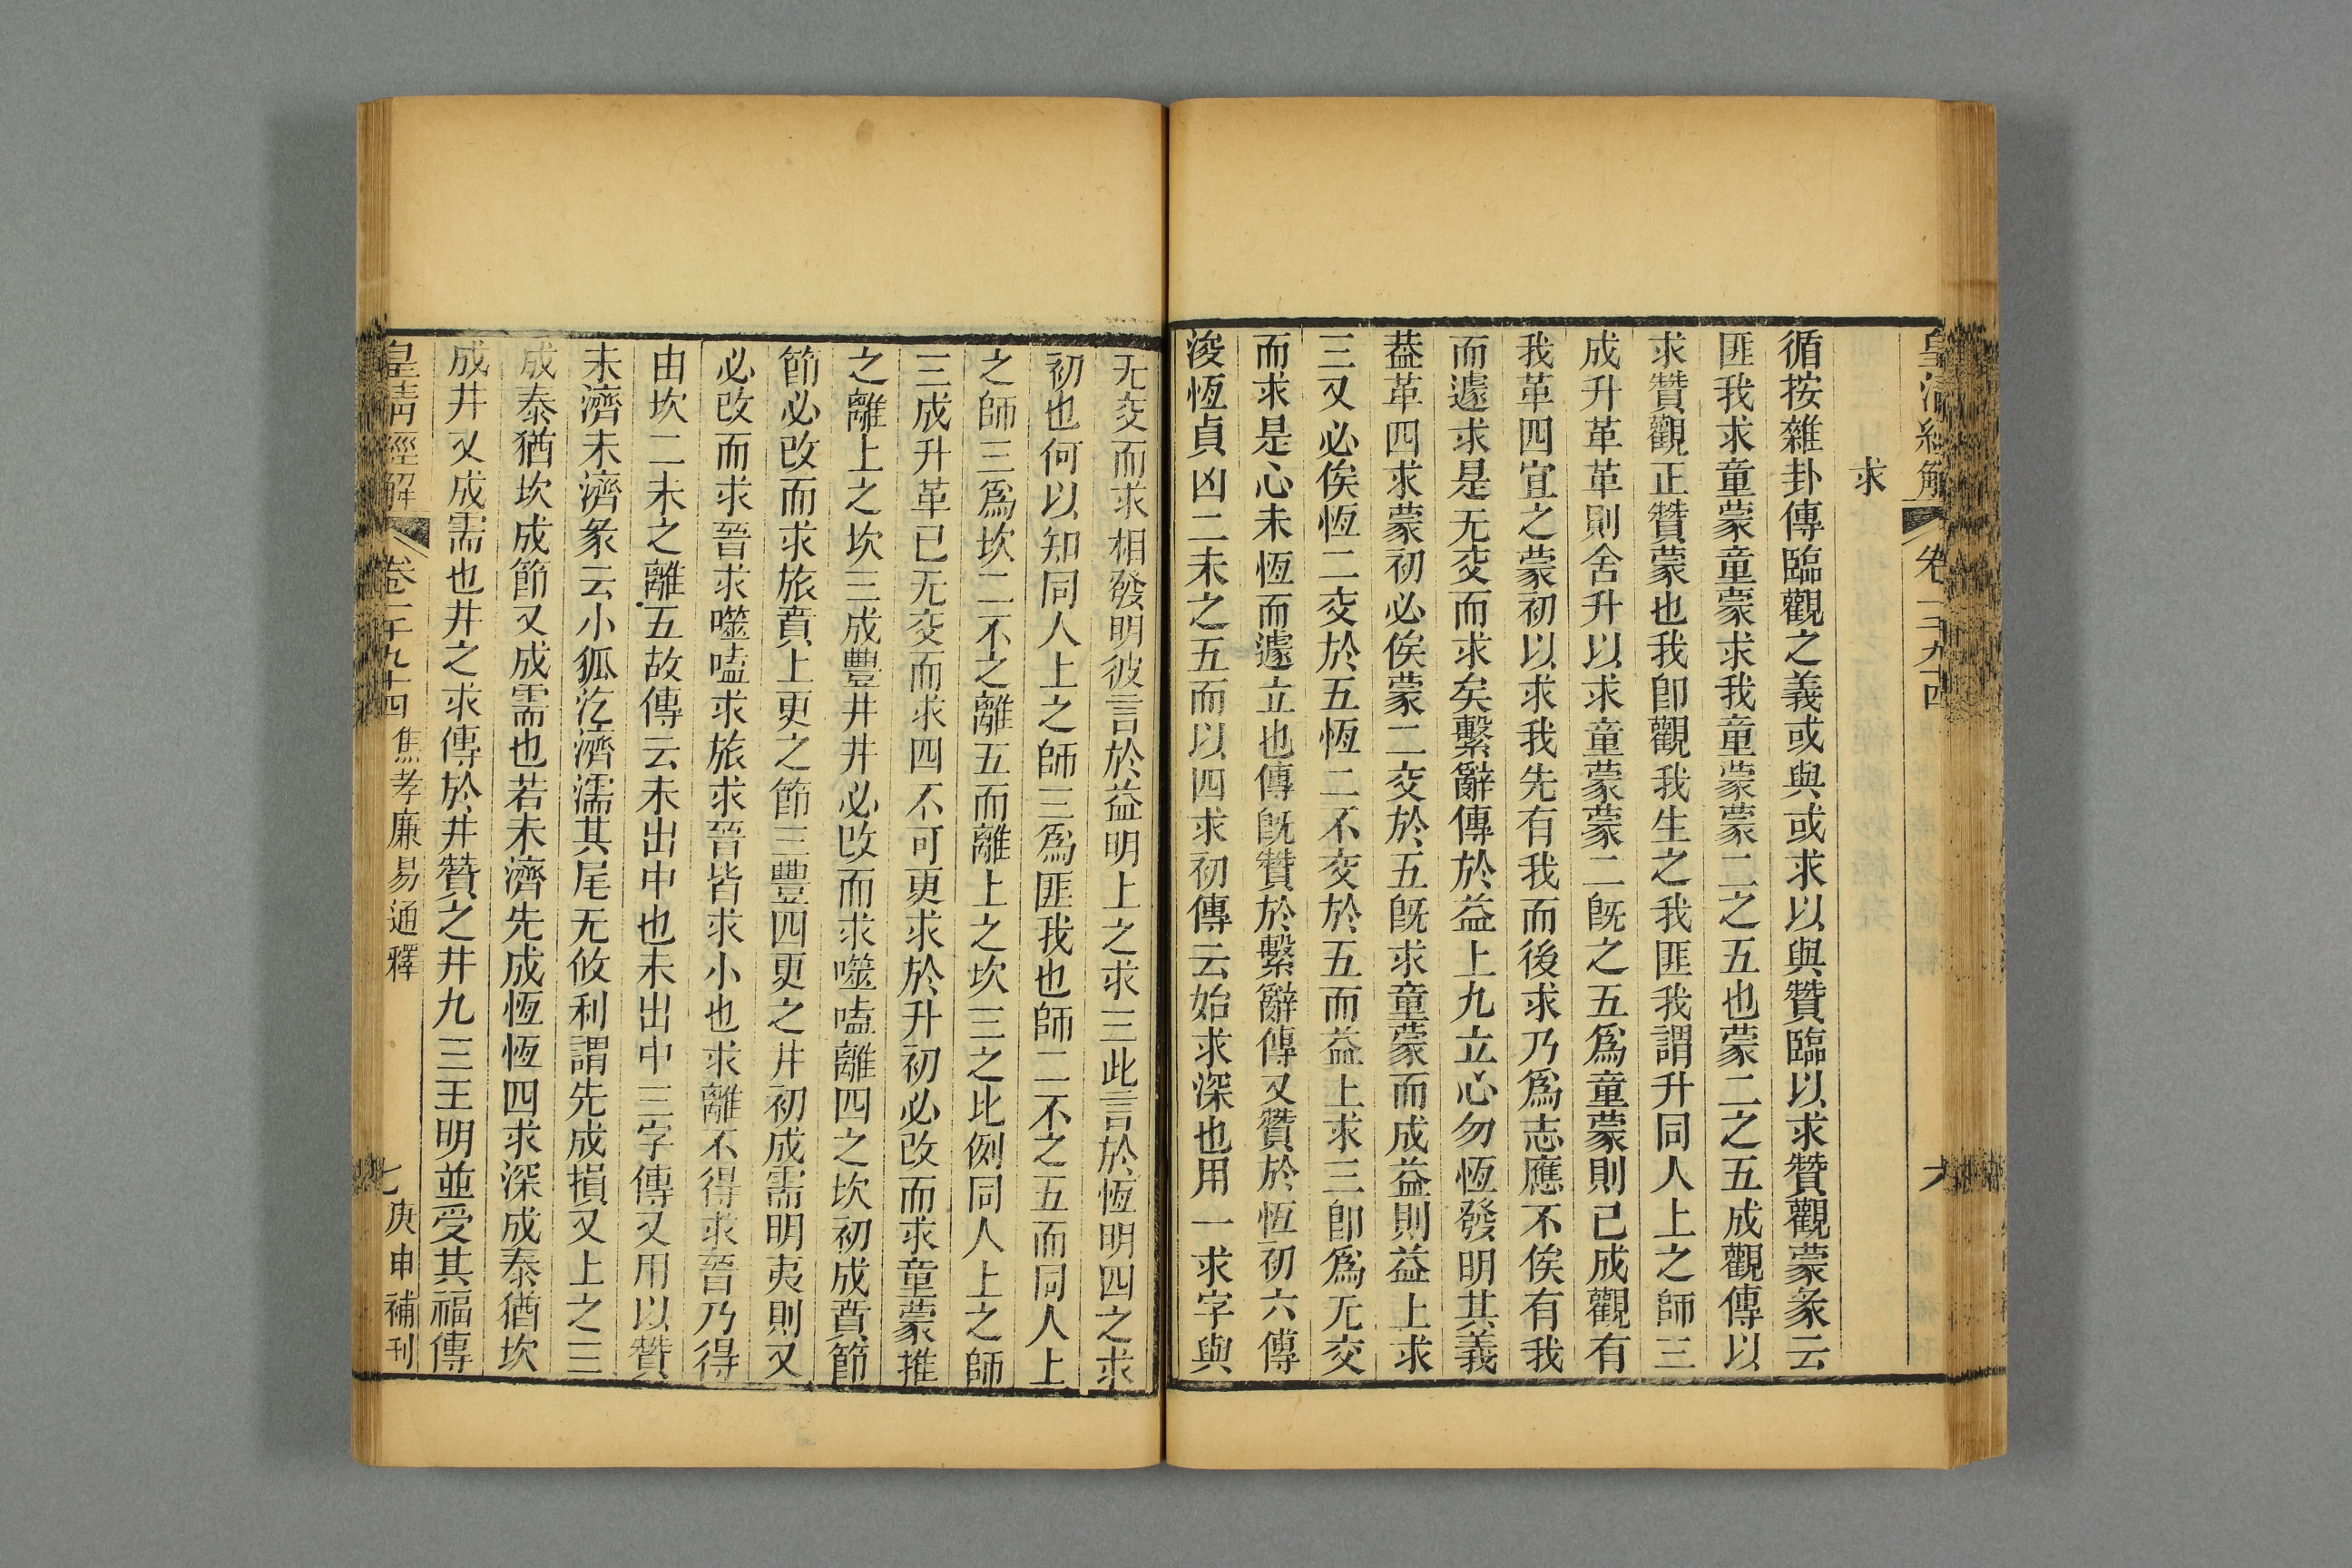 皇清經解
求
循按雜卦傳臨觀之義或與或求以與贊臨以求贊觀蒙彖云
匪我求童蒙童蒙求我童蒙蒙二之五也蒙二之五成觀傳以
求贊觀正贊蒙也我卽觀我生之我匪我謂升同人上之師三
成升革革則舍升以求童蒙蒙二旣之五爲童蒙則已成觀有
我革四宜之蒙初以求我先有我而後求乃爲志應不俟有我
而遽求是无交而求矣繫辭傳於益上九立心勿恆發明其義
葢革四求蒙初必俟蒙二交於五旣求童蒙而成益則益上求
三又必俟恆二交於五恆二不交於五而益上求三卽爲无交
而求是心未恆而遽立也傳旣贊於繫辭傳又贊於恆初六傳
浚恆貞凶二未之五而以四求初傳云始求深也用一求字與
无交而求相發明彼言於益明上之求三此言於恆明四之求
初也何以知同人上之師三爲匪我也師二不之五而同人上
之師三爲坎二不之離五而離上之坎三之比例同人上之師
三成升革已无交而求四不可更求於升初必改而求童蒙推
之離上之坎三成豐井井必改而求噬嗑離四之坎初成賁節
節必改而求旅賁上更之節三豐四更之井初成需明夷則又
必改而求晉求噬嗑求旅求晉皆求小也求離不得求晉乃得
由坎二未之離五故傳云未出中也未出中三字傳又用以贊
未濟未濟彖云小狐汔濟濡其尾无攸利謂先成損又上之三
成泰猶坎成節又成需也若未濟先成恆恆四求深成泰猶坎
成井又成需也井之求傳於井贊之井九三王明並受其福傳
皇清經解 卷一千九十四 焦孝廉易通釋 七 庚申補刊